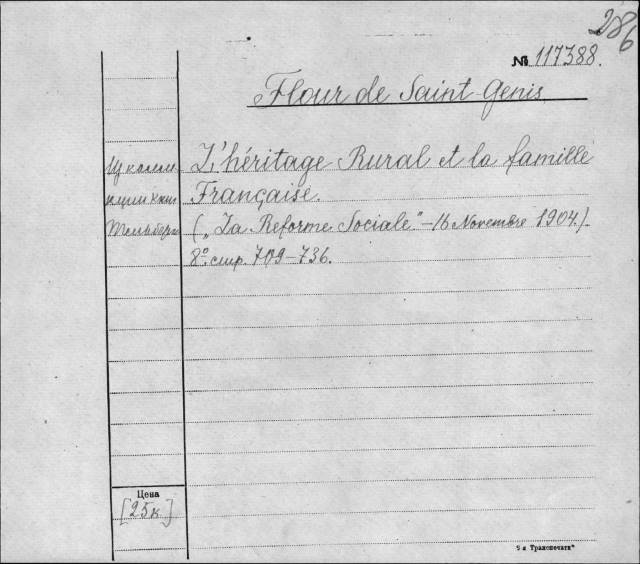 286
№ 117388.
Flour de Saint-Genis
L'héritage Rural et la famille
Française.
(„La Reforme Sociale" – 16 Novembre 1904.)
8º. стр. 709–736.
Из
Цена
[25 к]
9-я Транспечати"